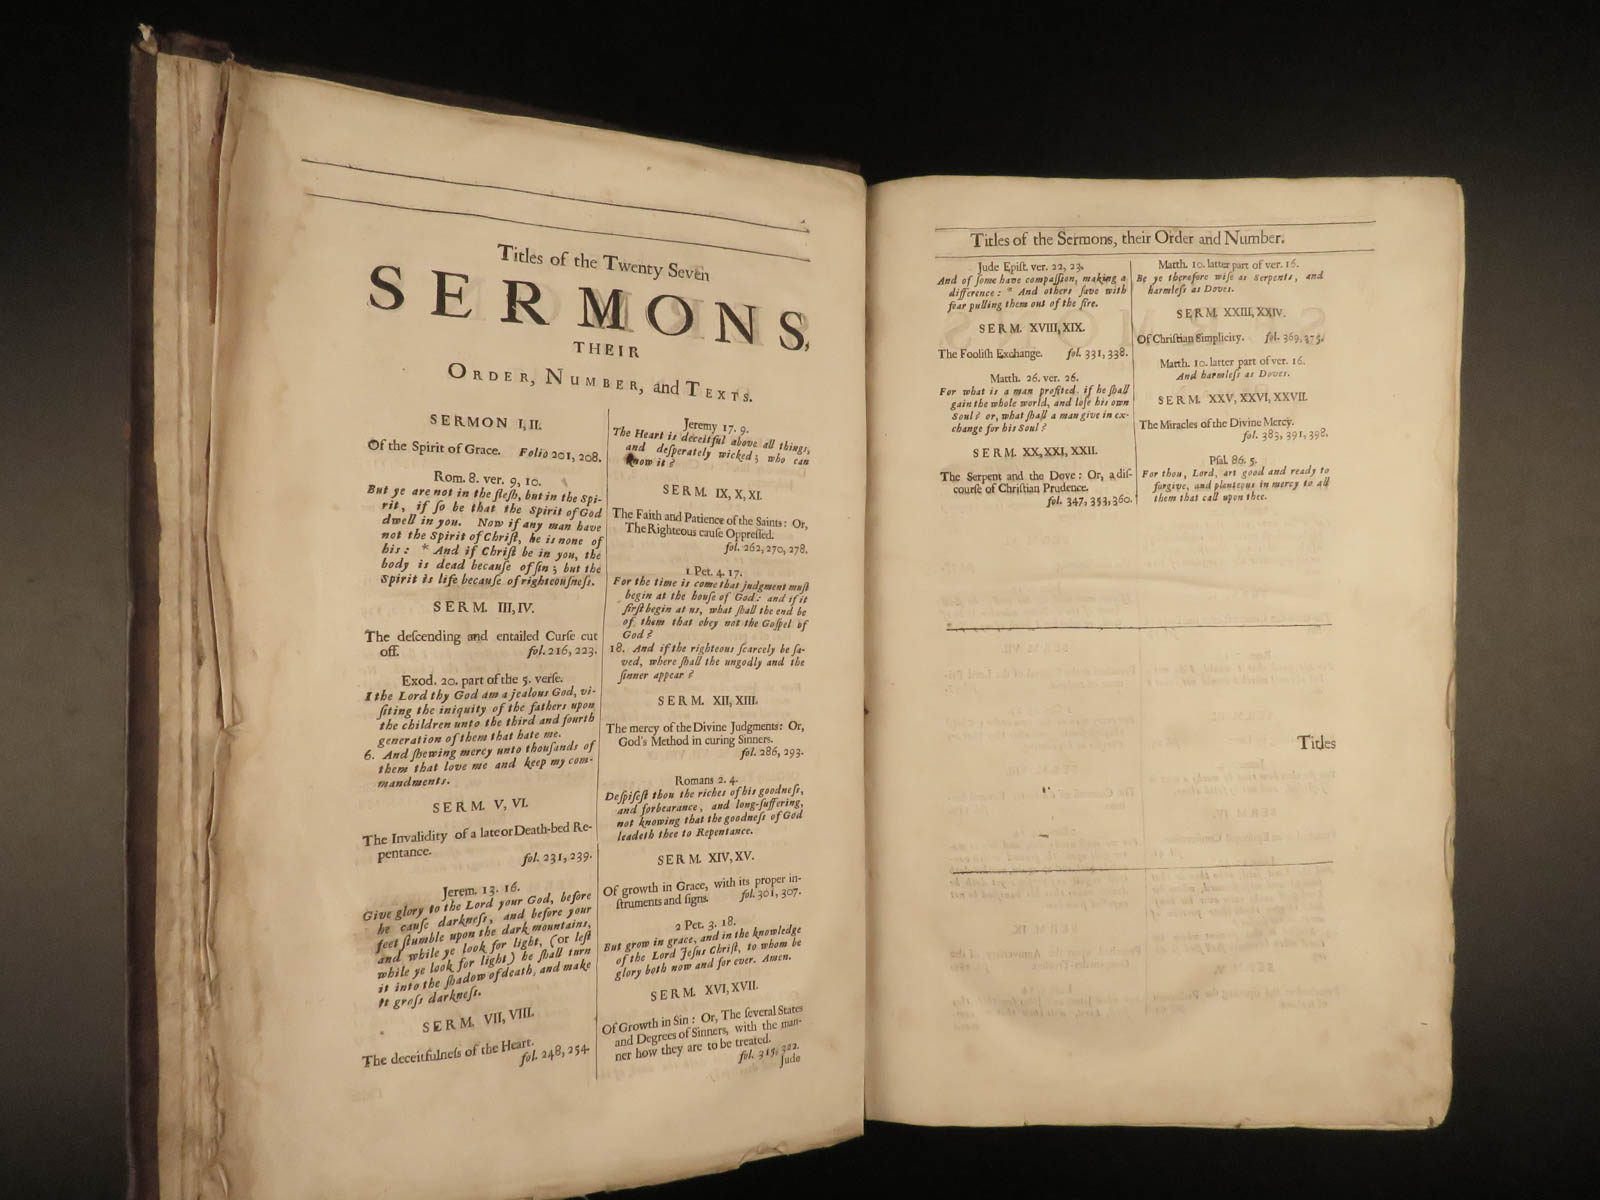 Titles of the Twenty Seven
SERMONS,
THEIR
ORDER, NUMBER, and TEXTS.
SERMON I, II.
Of the Spirit of Grace. Folio 201, 208.
Rom. 8. ver. 9, 10.
But ye are not in the fleſh, but in the Spi-
rit, if ſo be that the Spirit of God
dwell in you. Now if any man have
not the Spirit of Chriſt, he is none of
his: * And if Chriſt be in you, the
body is dead becauſe of ſin; but the
Spirit is life becauſe of righteouſneſs.
SERM. III, IV.
The deſcending and entailed Curſe cut
off. fol. 216, 223.
Exod. 20. part of the 5. verſe.
I the Lord thy God am a jealous God, vi-
ſiting the iniquity of the fathers upon
the children unto the third and fourth
generation of them that hate me.
6. And ſhewing mercy unto thouſands of
them that love me and keep my com-
mandments.
SERM. V, VI.
The Invalidity of a late or Death-bed Re-
pentance. fol. 231, 239.
Jerem. 13. 16.
Give glory to the Lord your God, before
he cauſe darkneſs, and before your
feet ſtumble upon the dark mountains,
and while ye look for light, (or leſt
while ye look for light) he ſhall turn
it into the ſhadow of death, and make
it groſs darkneſs.
SERM. VII, VIII.
The deceitfulneſs of the Heart.
fol. 248, 254.
Jeremy 17. 9.
The Heart is deceitful above all things,
and deſperately wicked; who can
know it?
SERM. IX, X, XI.
The Faith and Patience of the Saints: Or,
The Righteous cauſe Oppreſſed.
fol. 262, 270, 278.
1 Pet. 4. 17.
For the time is come that judgment muſt
begin at the houſe of God: and if it
firſt begin at us, what ſhall the end be
of them that obey not the Goſpel of
God?
18. And if the righteous ſcarcely be ſa-
ved, where ſhall the ungodly and the
ſinner appear?
SERM. XII, XIII.
The mercy of the Divine Judgments: Or,
God's Method in curing Sinners.
fol. 286, 293.
Romans 2. 4.
Deſpiſeſt thou the riches of his goodneſs,
and forbearance, and long-ſuffering,
not knowing that the goodneſs of God
leadeth thee to Repentance.
SERM. XIV, XV.
Of growth in Grace, with its proper in-
ſtruments and ſigns. fol. 301, 307.
2 Pet. 3. 18.
But grow in grace, and in the knowledge
of the Lord Jeſus Chriſt, to whom be
glory both now and for ever. Amen.
SERM. XVI, XVII.
Of Growth in Sin: Or, The ſeveral States
and Degrees of Sinners, with the man-
ner how they are to be treated.
fol. 315, 322.
Jude
Titles of the Sermons, their Order and Number.
Jude Epiſt. ver. 22, 23.
And of ſome have compaſſion, making a
difference: * And others ſave with
fear pulling them out of the fire.
SERM. XVIII, XIX.
The Fooliſh Exchange. fol. 331, 338.
Matth. 26. ver. 26.
For what is a man profited, if he ſhall
gain the whole world, and loſe his own
Soul? or, what ſhall a man give in ex-
change for his Soul?
SERM. XX, XXI, XXII.
The Serpent and the Dove: Or, a diſ-
courſe of Chriſtian Prudence.
fol. 347, 353, 360.
Matth. 10. latter part of ver. 16.
Be ye therefore wiſe as Serpents, and
harmleſs as Doves.
SERM. XXIII, XXIV.
Of Chriſtian Simplicity. fol. 369, 375.
Matth. 10. latter part of ver. 16.
And harmleſs as Doves.
SERM. XXV, XXVI, XXVII.
The Miracles of the Divine Mercy.
fol. 383, 391, 398.
Pſal. 86. 5.
For thou, Lord, art good and ready to
forgive, and plenteous in mercy to all
them that call upon thee.
Titles